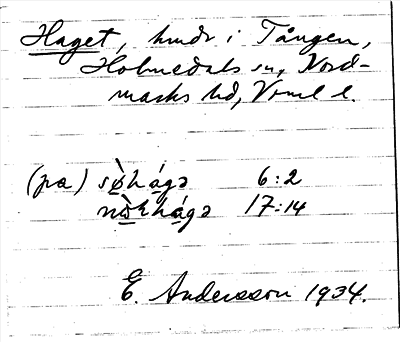 Haget, hmdr i Tången,
Holmedals sn, Nord-
marks hd, Vrml l.
(pa) sø̀hágə 6:2
nò̱khágə 17:14
E. Andersson 1934.